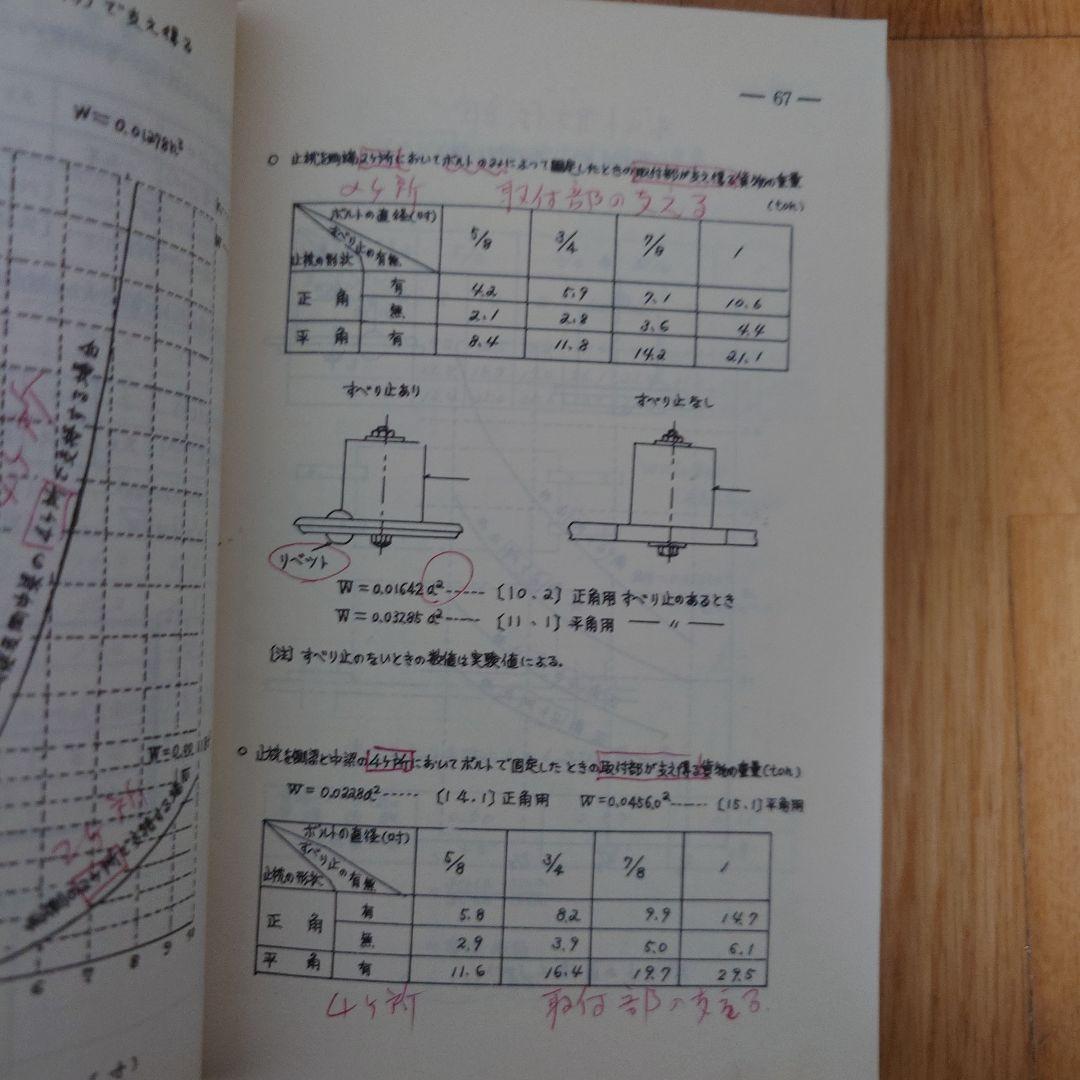 で支え得る
W=0.01278h²
— 67 —
○ 止杭を側梁2ヶ所においてボルトのみによって固定したときの取付部が支え得る貨物の重量
(ton)
2ヶ所 取付部の支える
ボルトの直径(吋) 5/8 3/4 7/8 1
すべり止の有無
止杭の形状
正角 有 4.2 5.9 7.1 10.6
無 2.1 2.8 3.6 4.4
平角 有 8.4 11.8 14.2 21.1
すべり止あり すべり止なし
リベット
W=0.01642d²‥‥‥ 〔10、2〕正角用 すべり止のあるとき
W=0.03285d²‥‥‥ 〔11、1〕平角用 — 〃 —
〔注〕すべり止のないときの数値は実験値による。
○ 止杭を側梁と中梁の4ヶ所においてボルトで固定したときの取付部が支え得る貨物の重量(ton)
W=0.0228d²‥‥‥ 〔14.1〕正角用 W=0.0456d²‥‥‥ 〔15.1〕平角用
ボルトの直径(吋) 5/8 3/4 7/8 1
すべり止の有無
止杭の形状
正角 有 5.8 8.2 9.9 14.7
無 2.9 3.9 5.0 6.1
平角 有 11.6 16.4 19.7 29.5
4ヶ所 取付部の支える